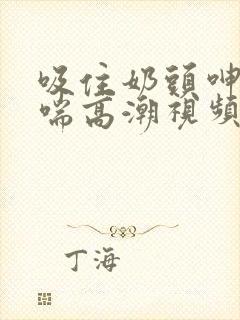 吸住奶頭呻
喘高潮視頻
丁海